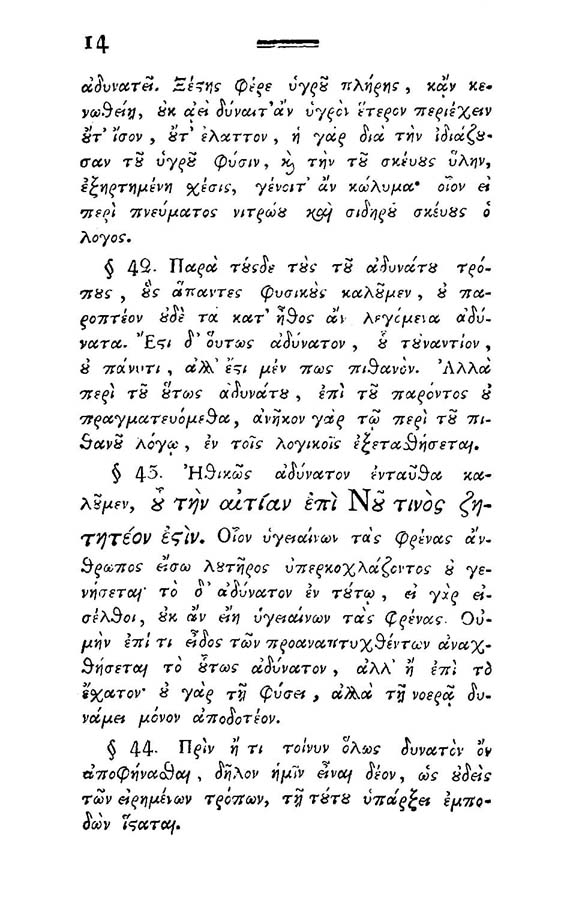 14
ἀδυνατεῖ. Ξέϛης φέρε ὑγρȣ͂ πλήρης, κᾂν κε-
νωθείη, ȣ̓κ ἀεὶ δύναιτ᾽ ἂν ὑγρὸν ἕτερον περιέχειν
ȣ̓́τ᾽ ἴσον, ȣ̓́τ᾽ ἔλαττον, ἡ γὰρ διὰ τὴν ἰδιάζȣ-
σαν τȣ͂ ὑγρȣ͂ φύσιν, ϗ τὴν τȣ͂ σκέυȣς ὕλην,
ἐξηρτημένη χέσις, γένοιτ᾽ ἂν κώλυμα· οἷον εἰ
περὶ πνεύματος νιτρώȣ καὶ σιδηρȣ͂ σκέυȣς ὁ
λογος.
§ 42. Παρὰ τȣ́ςδε τȣ̀ς τȣ͂ ἀδυνάτȣ τρό-
πȣς, ȣ̔̀ς ἅπαντες φυσικȣ̀ς καλȣ͂μεν, ȣ̓ πα-
ροπτέον ȣ̓δὲ τὰ κατ᾽ ἦθος ἂν λεγόμενα ἀδύ-
νατα. Ἔϛι δ᾽ ὅυτως ἀδύνατον, ȣ̔͂ τȣ̓ναντίον,
ȣ̓ πάνυτι, ἀλλ᾽ ἔϛι μέν πως πιθανόν. Ἀλλὰ
περὶ τȣ͂ ȣ̔́τως ἀδυνάτȣ, ἐπὶ τȣ͂ παρόντος ȣ̓
πραγματευόμεθα, ἀνῆκον γὰρ τῷ περὶ τȣ͂ πι-
θανȣ͂ λόγῳ, ἐν τοῖς λογικοῖς ἐξεταθήσεται.
§ 43. Ἠθικῶς ἀδύνατον ἐνταῦθα κα-
λȣ͂μεν, ȣ̔͂ τὴν αἰτίαν ἐπὶ Νȣ͂ τινὸς ζη-
τητέον ἐϛίν. Οἷον ὑγειαίνων τὰς φρένας ἄν-
θρωπος εἴσω λȣτῆρος ὑπερκοχλάζοντος ȣ̓ γε-
νήσεται· τὸ δ᾽ ἀδύνατον ἐν τȣ́τῳ, εἰ γὰρ εἰ-
σέλθοι, ȣ̓κ ἂν εἴη ὑγειαίνων τὰς φρένας. Οὐ-
μὴν ἐπί τι εἶδος τῶν προαναπτυχθέντων ἀναχ-
θήσεται τὸ ȣ̔́τως ἀδύνατον, ἀλλ᾽ ἢ ἐπὶ τὸ
ἔχατον· ȣ̓ γὰρ τῇ φύσει, ἀλλὰ τῇ νοερᾷ δυ-
νάμει μόνον ἀποδοτέον.
§ 44. Πρὶν ἤ τι τοίνυν ὅλως δυνατὸν ὂν
ἀποφήναθαι, δῆλον ἡμῖν εἶναι δέον, ὡς ȣ̓δεὶς
τῶν εἰρημένων τρόπων, τῇ τȣ́τȣ ὑπάρξει ἐμπο-
δὼν ἵϛαται.